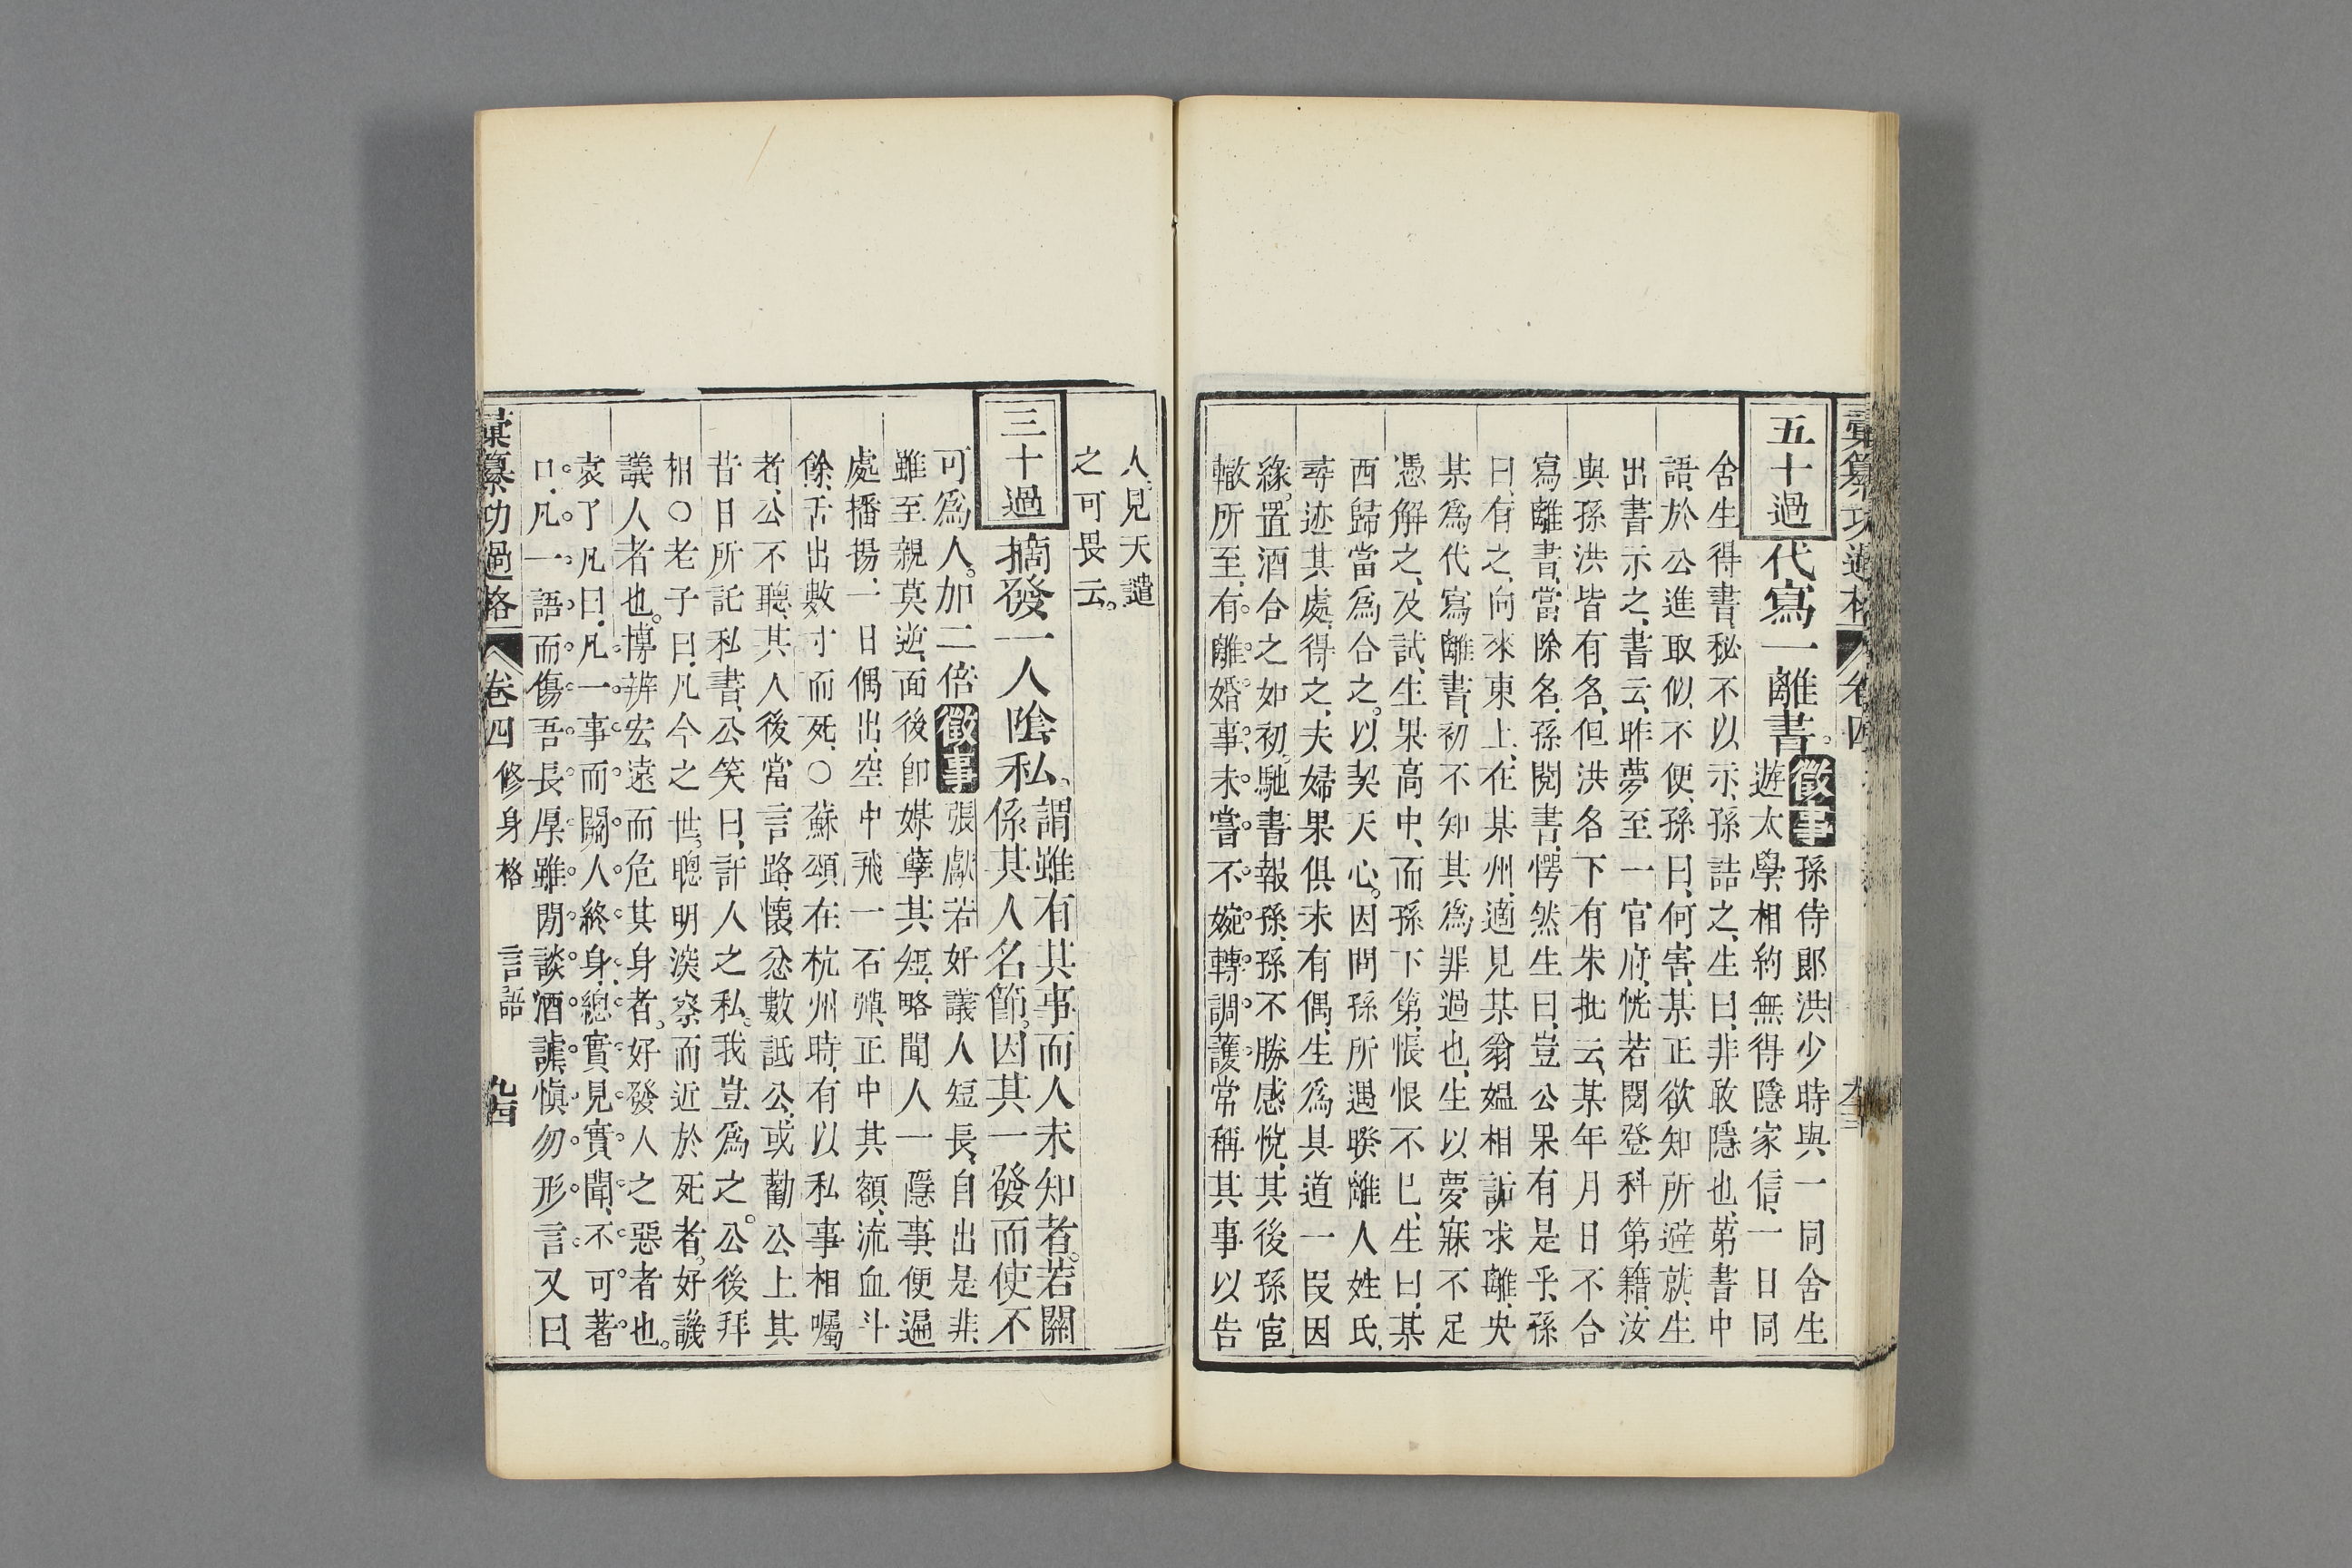 彙纂功過格
卷四
五十過
代寫一離書。
徵事
孫侍郎洪少時與一同舍生
遊太學、相約無得隱家信、一日同
舍生得書、秘不以示、孫詰之、生曰、非敢隱也、第書中
語、於公進取似不便、孫曰、何害、某正欲知所避就、生
出書示之、書云、昨夢至一官府、恍若閱登科第籍、汝
與孫洪皆有名、但洪名下有朱批云、某年月日不合
寫離書、當除名、孫閱書、愕然、生曰、豈公果有是乎、孫
曰、有之、向來東上、在某州、適見某翁媼相詬求離、央
某爲代寫離書、初不知其爲罪過也、生以夢寐不足
憑解之、及試、生果高中、而孫下第、悵恨不已、生曰、某
西歸當爲合之。以契天心。因問孫所遇睽離人姓氏、
尋迹其處、得之、夫婦果俱未有偶、生爲具道一段因
緣、置酒合之如初、馳書報孫、孫不勝感悅、其後孫宦
轍所至、有離婚事、未嘗不婉轉調護、常稱其事以告
人、見天譴
之可畏云。
三十過
摘發一人陰私、
謂雖有其事而人未知者。若關
係其人名節、因其一發而使不
可爲人。加二倍
徵事
張獻若好議人短長、自出是非、
雖至親莫逆、面後卽媒孽其短、略聞人一隱事、便遍
處播揚、一日偶出、空中飛一石彈、正中其額、流血斗
餘、舌出數寸而死、○蘇頌在杭州時、有以私事相囑
者、公不聽、其人後當言路、懷忿數詆公、或勸公上其
昔日所託私書、公笑曰、訐人之私。我豈爲之。公後拜
相○老子曰、凡今之世、聰明深察而近於死者、好譏
議人者也。博辨宏遠而危其身者。好發人之惡者也。
袁了凡曰、凡一事而關人終身、總實見實聞、不可著
口、凡一語而傷吾長厚、雖閒談酒謔、愼勿形言又曰、
彙纂功過格
卷四
修身格
言語
九四